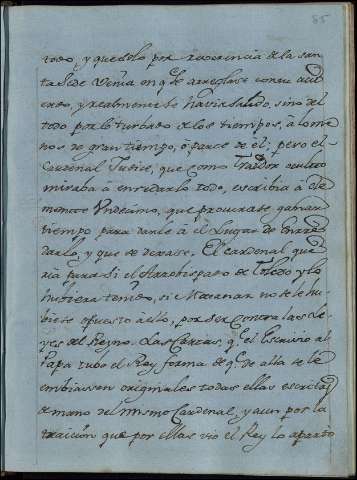 85
todo, y que solo por reverencia de la san
ta Sede venia en q.e se arreglase con su acu
erdo, y realmente se havia salido, sino del
todo por lo turbado de los tiempos, à lo me
nos de gran tiempo, ò parte de el; pero el
Cardenal Judice, que como Traidor oculto
miraba à enredarlo todo, escribia à Cle
mente Undecimo, que procurase ganar
tiempo para darle à el lugar de enrre
darlo, y que se dexase. El Cardenal que
ria para si el Arzobispado de Toledo y lo
hubiera tenido, si Macanaz no se le hu
biese opuesto à ello, por ser contra las Le
yes del Reyno. Las Cartas, q.e el escrivio al
Papa tubo el Rey forma de q.e de alla se le
embiassen originales todas ellas escritas
de mano del mismo Cardenal, y aun por la
traicion que por ellas vio el Rey lo apartò